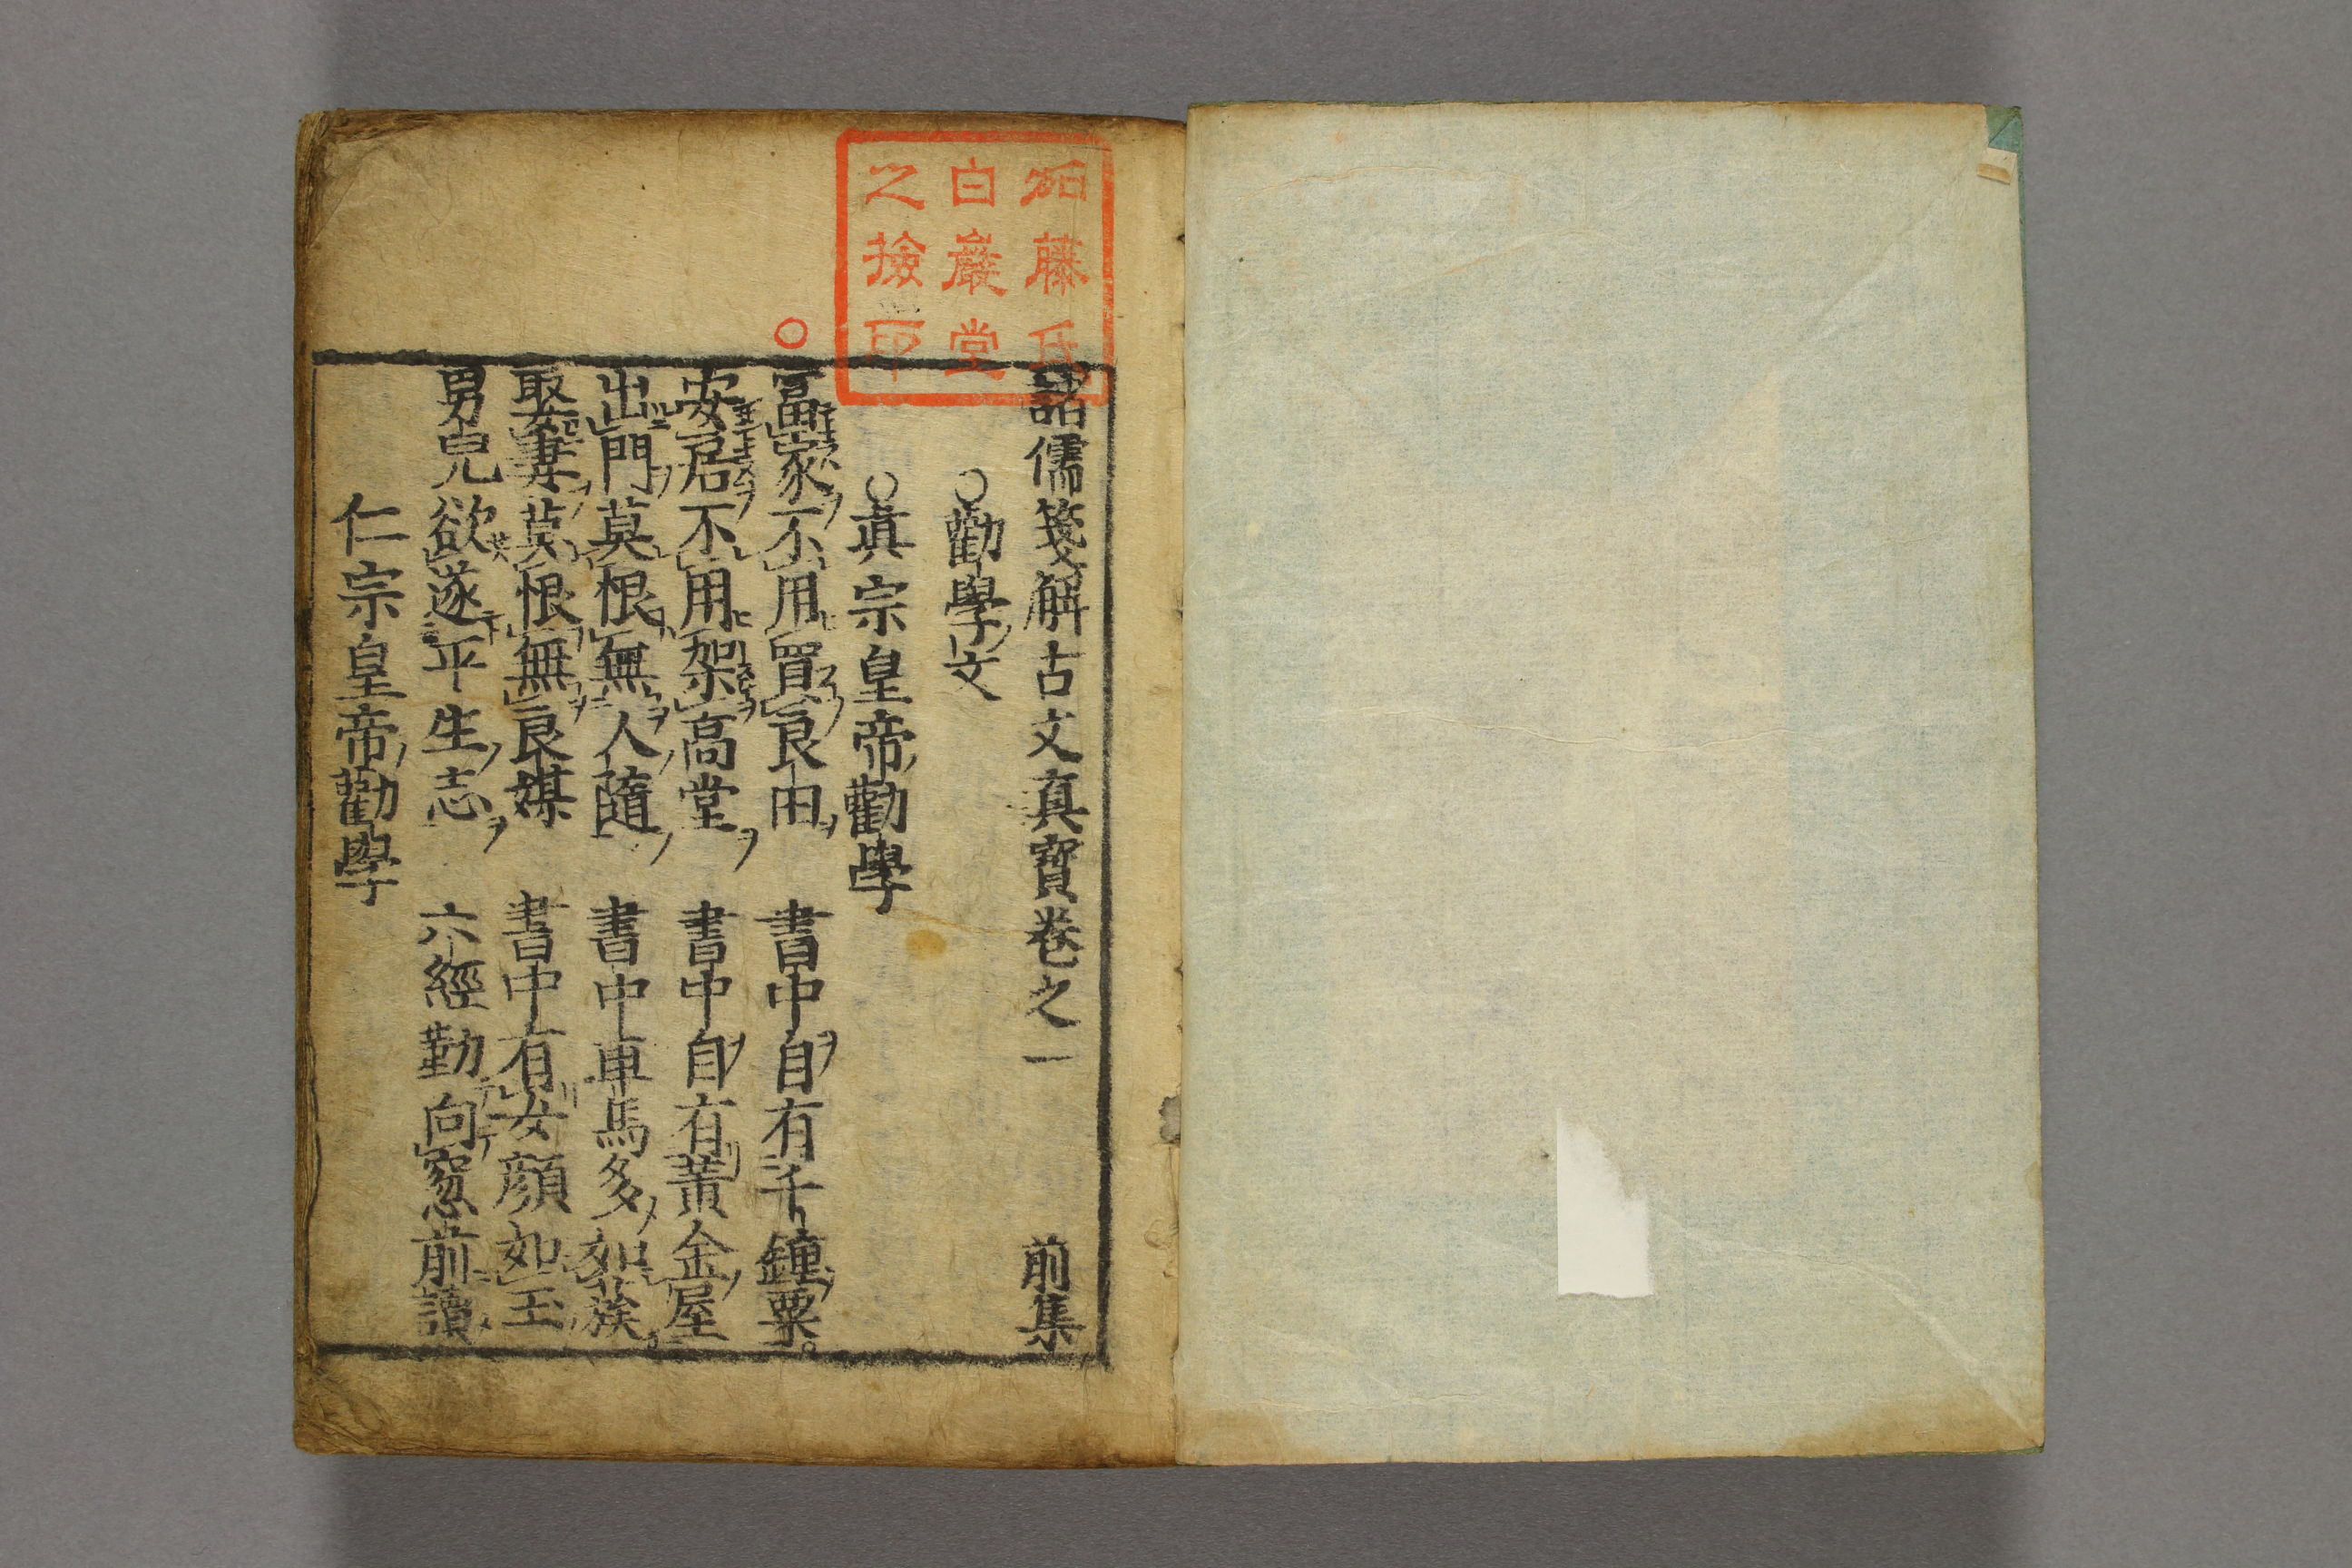 加藤氏
白巖堂
之撿印
諸儒箋解古文真寶卷之一 前集
○勸學文
○眞宗皇帝勸學
富家不用買良田 書中自有千鐘粟
安居不用架高堂 書中自有黃金屋
出門莫恨無人隨 書中車馬多如蔟
娶妻莫恨無良媒 書中有女顔如玉
男兒欲遂平生志 六經勤向窓前讀
仁宗皇帝勸學